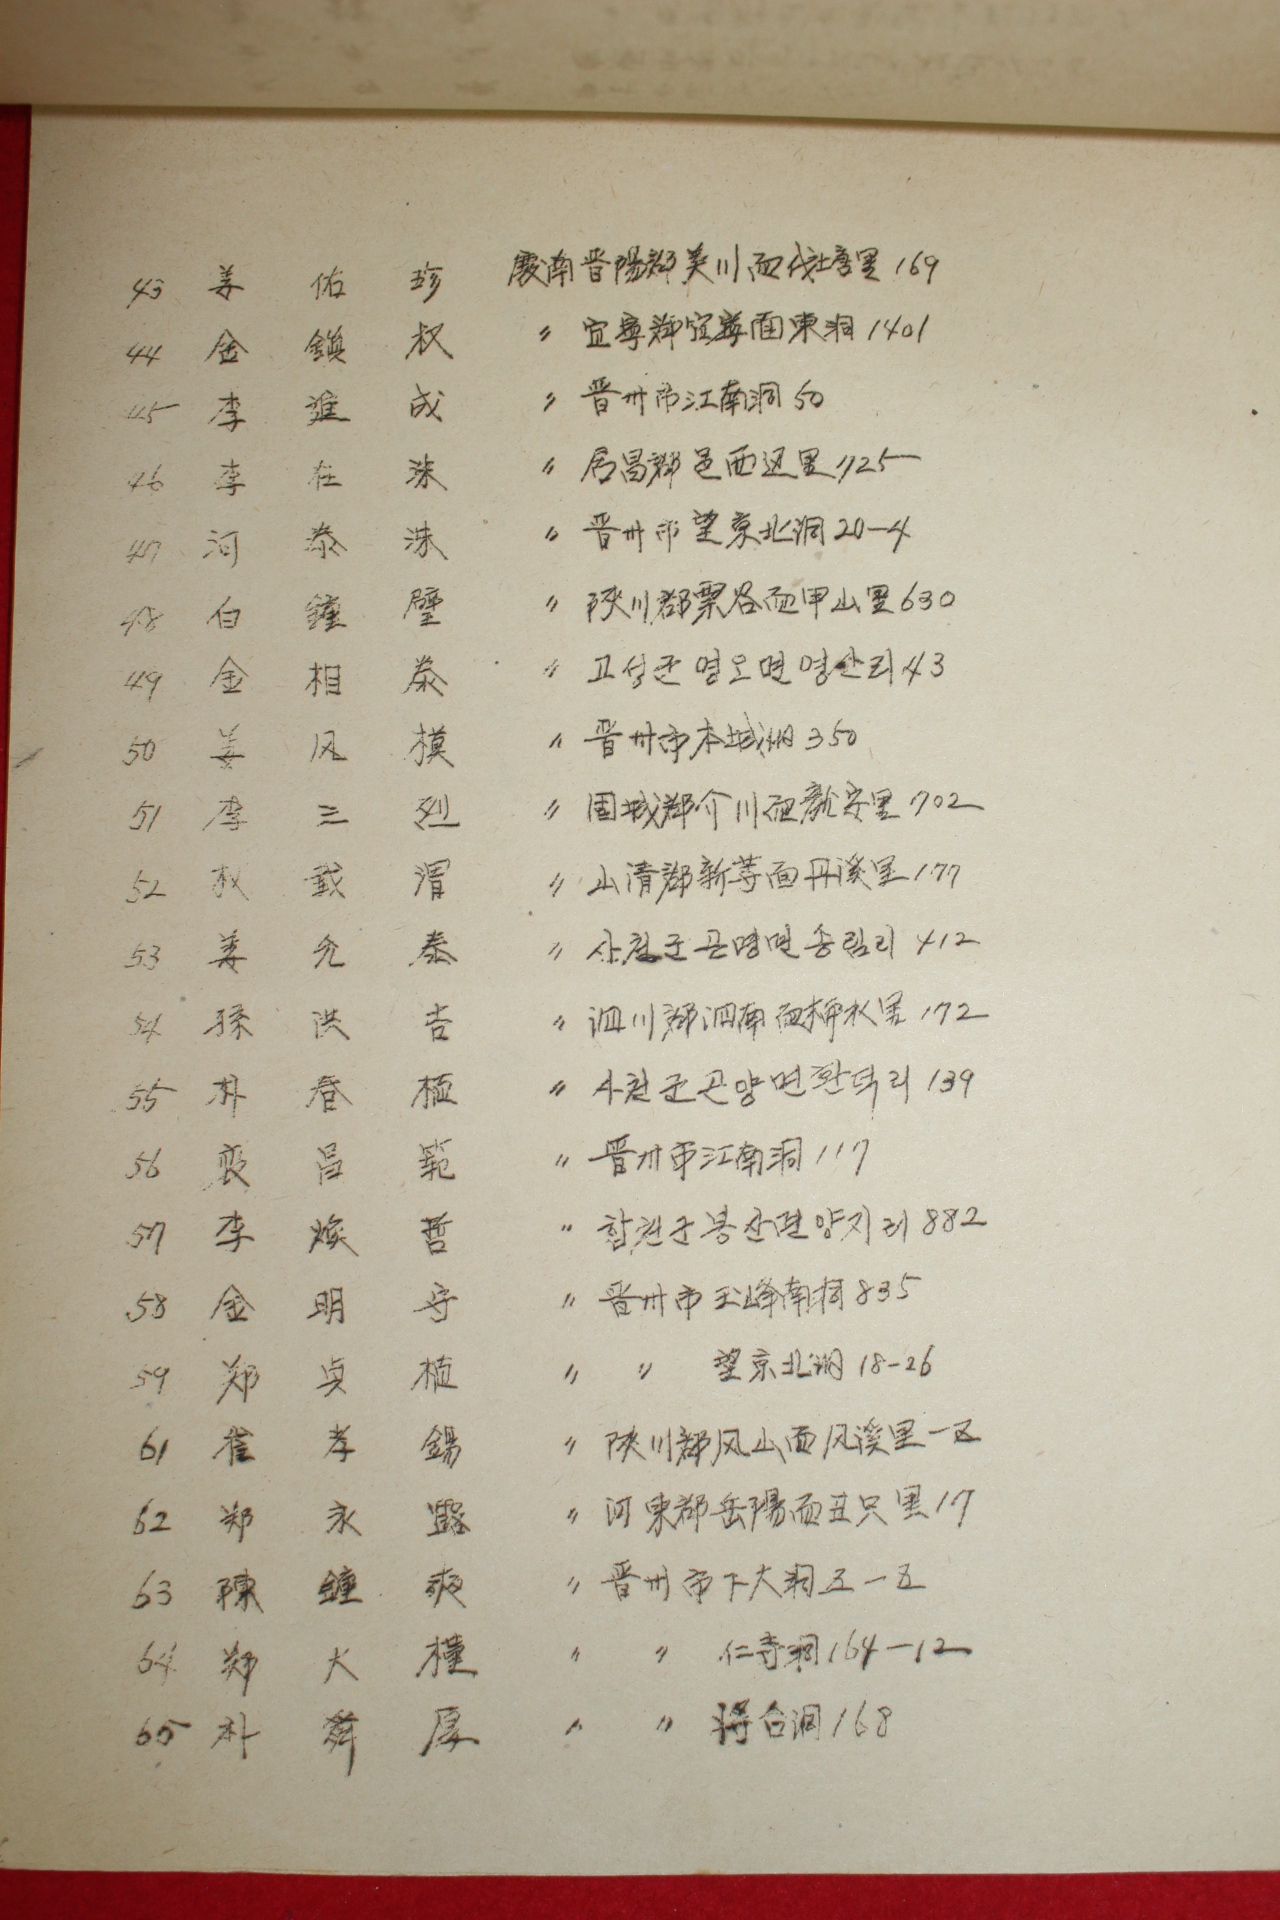 43 姜 佑 珍 慶南晋陽郡美川面伐社里169
44 金 鎭 权 〃 宜寧郡宜寧面東洞1401
45 李 進 成 〃 晋州市江南洞50
46 李 在 洙 〃 居昌郡邑西辺里1125
47 河 泰 洙 〃 晋州市望京北洞20-4
48 白 鐘 璧 〃 陜川郡栗谷面甲山里630
49 金 相 泰 〃 고성군영오면영산리43
50 姜 凤 模 〃 晋州市本城洞350
51 李 三 烈 〃 固城郡介川面龍安里702
52 权 載 渭 〃 山清郡新等面丹溪里177
53 姜 允 泰 〃 사천군곤명면송림리412
54 孫 洪 吉 〃 泗川郡泗南面里172
55 朴 春 植 〃 사천군곤양면환덕리139
56 裵 昌 範 〃 晋州市江南洞117
57 李 煥 哲 〃 합천군봉산면양지리882
58 金 明 守 〃 晋州市玉峰南洞835
59 郑 貞 植 〃 〃 望京北洞18-26
61 崔 孝 錫 〃 陜川郡凤山面凤溪里一五
62 郑 永 〃 河東郡岳陽面丑只里17
63 陳 鐘 爽 〃 晋州市下大洞五一五
64 郑 大 槿 〃 〃 仁寺洞164-12
65 朴 舜 厚 〃 〃 将台洞168